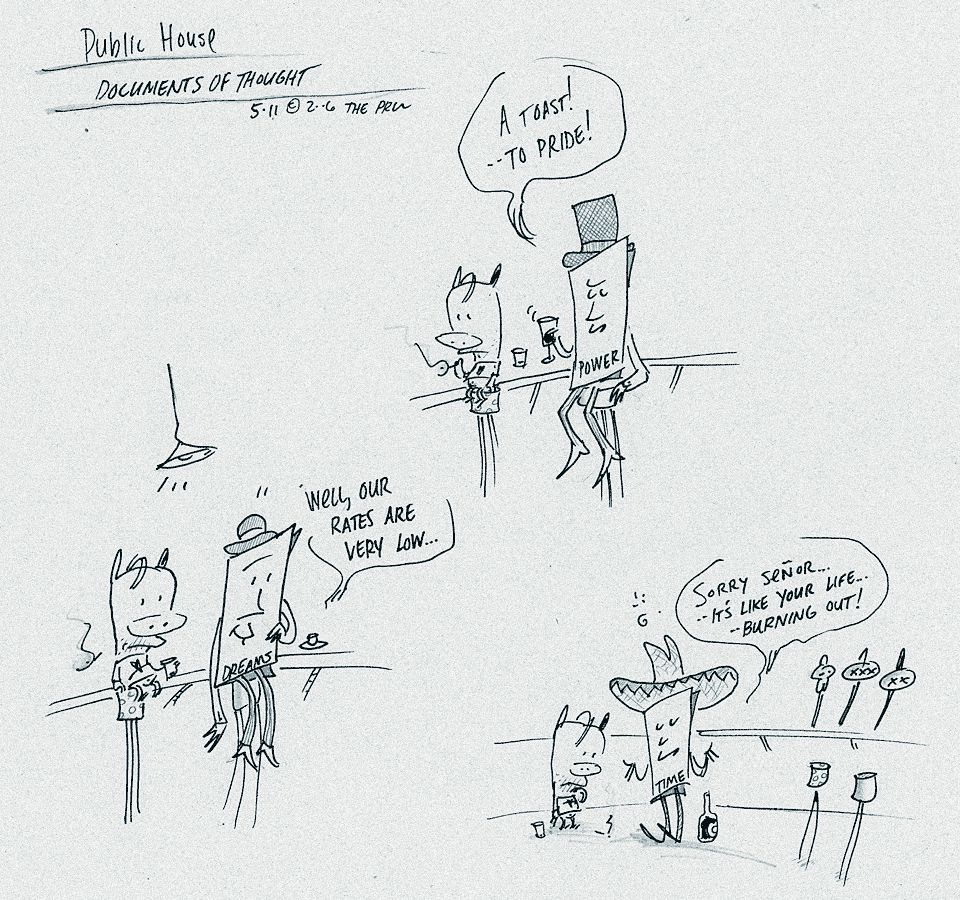 Public House
DOCUMENTS OF THOUGHT
5·11 ©
A TOAST!
--TO PRIDE!
POWER
Well, OUR
RATES ARE
VERY LOW...
DREAMS
SORRY SEÑOR...
--IT'S LIKE YOUR LIFE...
--BURNING OUT!
TIME
XXX
XX